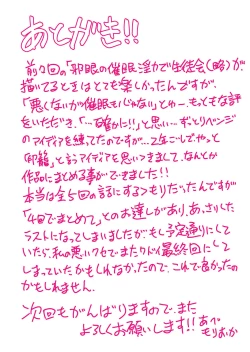 あとがき!!
前々回の「邪眼の催眠淫力で生徒会(略)が
描いてるときはとても楽しかったんですが、
「悪くないが催眠モノじゃない」とゆー、もっともな評
をいただき、「…確かに!!」と思い…ずっとリベンジ
のアイディアを練ってたのですが…2年ごしでやっと
「印籠」と言うアイディアを思いつきまして、なんとか
作品にまとめる事ができました!!
本当は全5回の話にするつもりだったんですが
「4回でまとめて」とのお達しがあり、あっさりした
ラストになってしまいましたが、もし予定通りにして
いたら、私の悪いクセで、またクドイ最終回にして
しまっていたかもしれなかったので、これで良かったの
かもしれません。
次回もがんばりますので、また
よろしくお願いします!!
あべ
もりおか